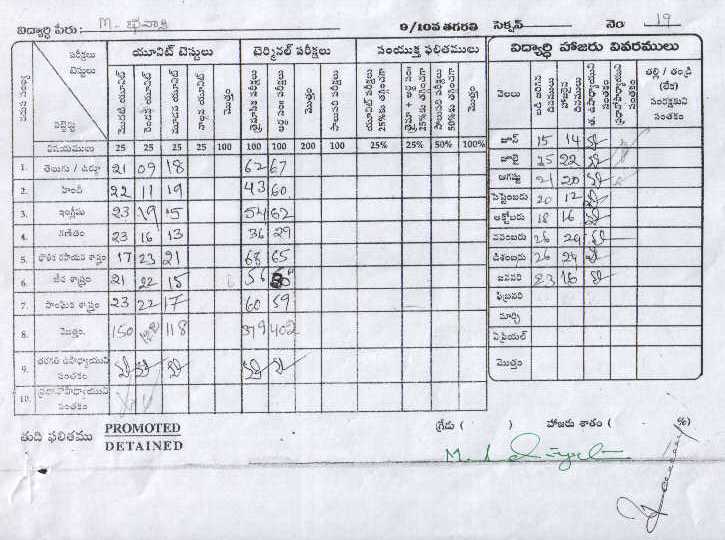 విద్యార్థి పేరు: M. భవాని 9/10వ తరగతి సెక్షన్ నెం 19
వరుస సంఖ్య పరీక్షలు టెస్టులు సబ్జెక్టు యూనిట్ టెస్టులు టెర్మినల్ పరీక్షలు సంయుక్త ఫలితములు
మొదటి యూనిట్ రెండవ యూనిట్ మూడవ యూనిట్ నాల్గవ యూనిట్ మొత్తం త్రైమాసిక పరీక్షలు అర్థ సం పరీక్షలు మొత్తం సాలుసరి పరీక్షలు యూనిట్ పరీక్షలు 25%కు తగ్గించగా త్రైమా + అర్థ సం 25%కు తగ్గించగా సాలుసరి పరీక్షలు 50%కు తగ్గించగా మొత్తం
విషయములు 25 25 25 25 100 100 100 200 100 25% 25% 50% 100%
1. తెలుగు / ఉర్దూ 21 09 18 62 67
2. హింది 22 11 19 43 60
3. ఇంగ్లీషు 23 19 15 54 62
4. గణితం 23 16 13 36 29
5. భౌతిక రసాయన శాస్త్రం 17 23 21 68 65
6. జీవ శాస్త్రం 21 22 15 56
7. సాంఘిక శాస్త్రం 23 22 17 60 59
8. మొత్తం. 150 118 379 402
9. తరగతి ఉపాధ్యాయుని సంతకం
10. ప్రధానోపాధ్యాయుని సంతకం
విద్యార్థి హాజరు వివరములు
నెలలు బడి జరిగిన దినములు హాజరైన దినములు త. ఉపాధ్యాయుని సంతకం ప్రధానోపాధ్యాయుని సంతకం తల్లి / తండ్రి (లేక) సంరక్షకుని సంతకం
జూన్ 15 14
జూలై 25 22
ఆగష్టు 21 20
సెప్టెంబరు 20 12
అక్టోబరు 18 16
నవంబరు 26 24
డిశంబరు 26 24
జనవరి 23 16
ఫిబ్రవరి
మార్చి
ఏప్రియల్
మొత్తం
తుది ఫలితము PROMOTED
DETAINED
గ్రేడు ( ) హాజరు శాతం ( %)